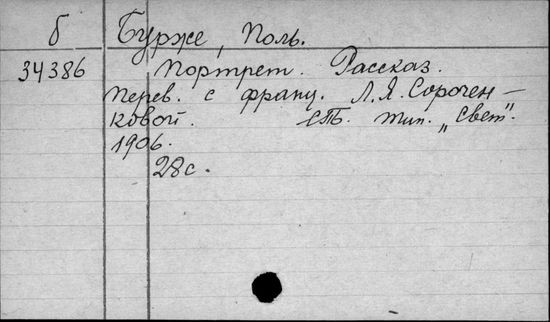 б Бурже, Поль.
34386 Портрет. Рассказ.
Перев. с франц. Л.Я.Сорочен-
ковой. СПб. тип. „Свет".
1906.
28с.